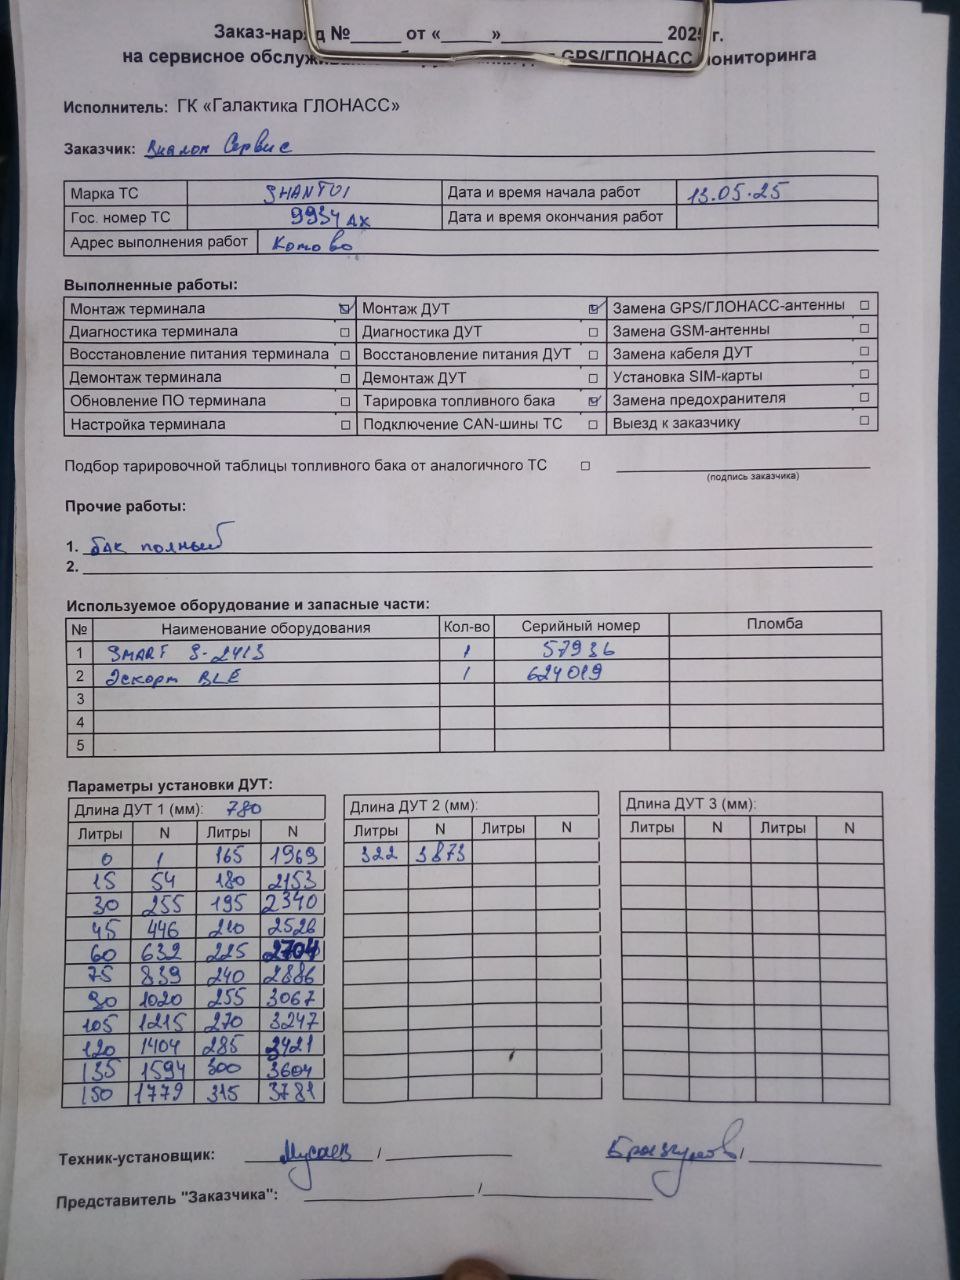 Заказ-наряд №_____ от «_____»________________ 2025 г.
на сервисное обслуживание GPS/ГЛОНАСС мониторинга
Исполнитель: ГК «Галактика ГЛОНАСС»
Заказчик: Виалон Сервис
Марка ТС SHANTUI Дата и время начала работ 13.05.25
Гос. номер ТС 9934 АХ Дата и время окончания работ
Адрес выполнения работ Котово
Выполненные работы:
Монтаж терминала ☑ Монтаж ДУТ ☑ Замена GPS/ГЛОНАСС-антенны ☐
Диагностика терминала ☐ Диагностика ДУТ ☐ Замена GSM-антенны ☐
Восстановление питания терминала ☐ Восстановление питания ДУТ ☐ Замена кабеля ДУТ ☐
Демонтаж терминала ☐ Демонтаж ДУТ ☐ Установка SIM-карты ☐
Обновление ПО терминала ☐ Тарировка топливного бака ☑ Замена предохранителя ☐
Настройка терминала ☐ Подключение CAN-шины ТС ☐ Выезд к заказчику ☐
Подбор тарировочной таблицы топливного бака от аналогичного ТС ☐
(подпись заказчика)
Прочие работы:
1. бак полный
2.
Используемое оборудование и запасные части:
№ Наименование оборудования Кол-во Серийный номер Пломба
1 SMART S-2413 1 57936
2 Эскорт BLE 1 624019
3
4
5
Параметры установки ДУТ:
Длина ДУТ 1 (мм): 780 Длина ДУТ 2 (мм): Длина ДУТ 3 (мм):
Литры N Литры N Литры N Литры N Литры N Литры N
0 1 165 1969 322 3873
15 54 180 2153
30 255 195 2340
45 446 210 2526
60 632 225 2704
75 839 240 2886
90 1020 255 3067
105 1215 270 3247
120 1404 285 3421
135 1594 300 3604
150 1779 315 3781
Техник-установщик: Мусаев / /
Представитель "Заказчика": /